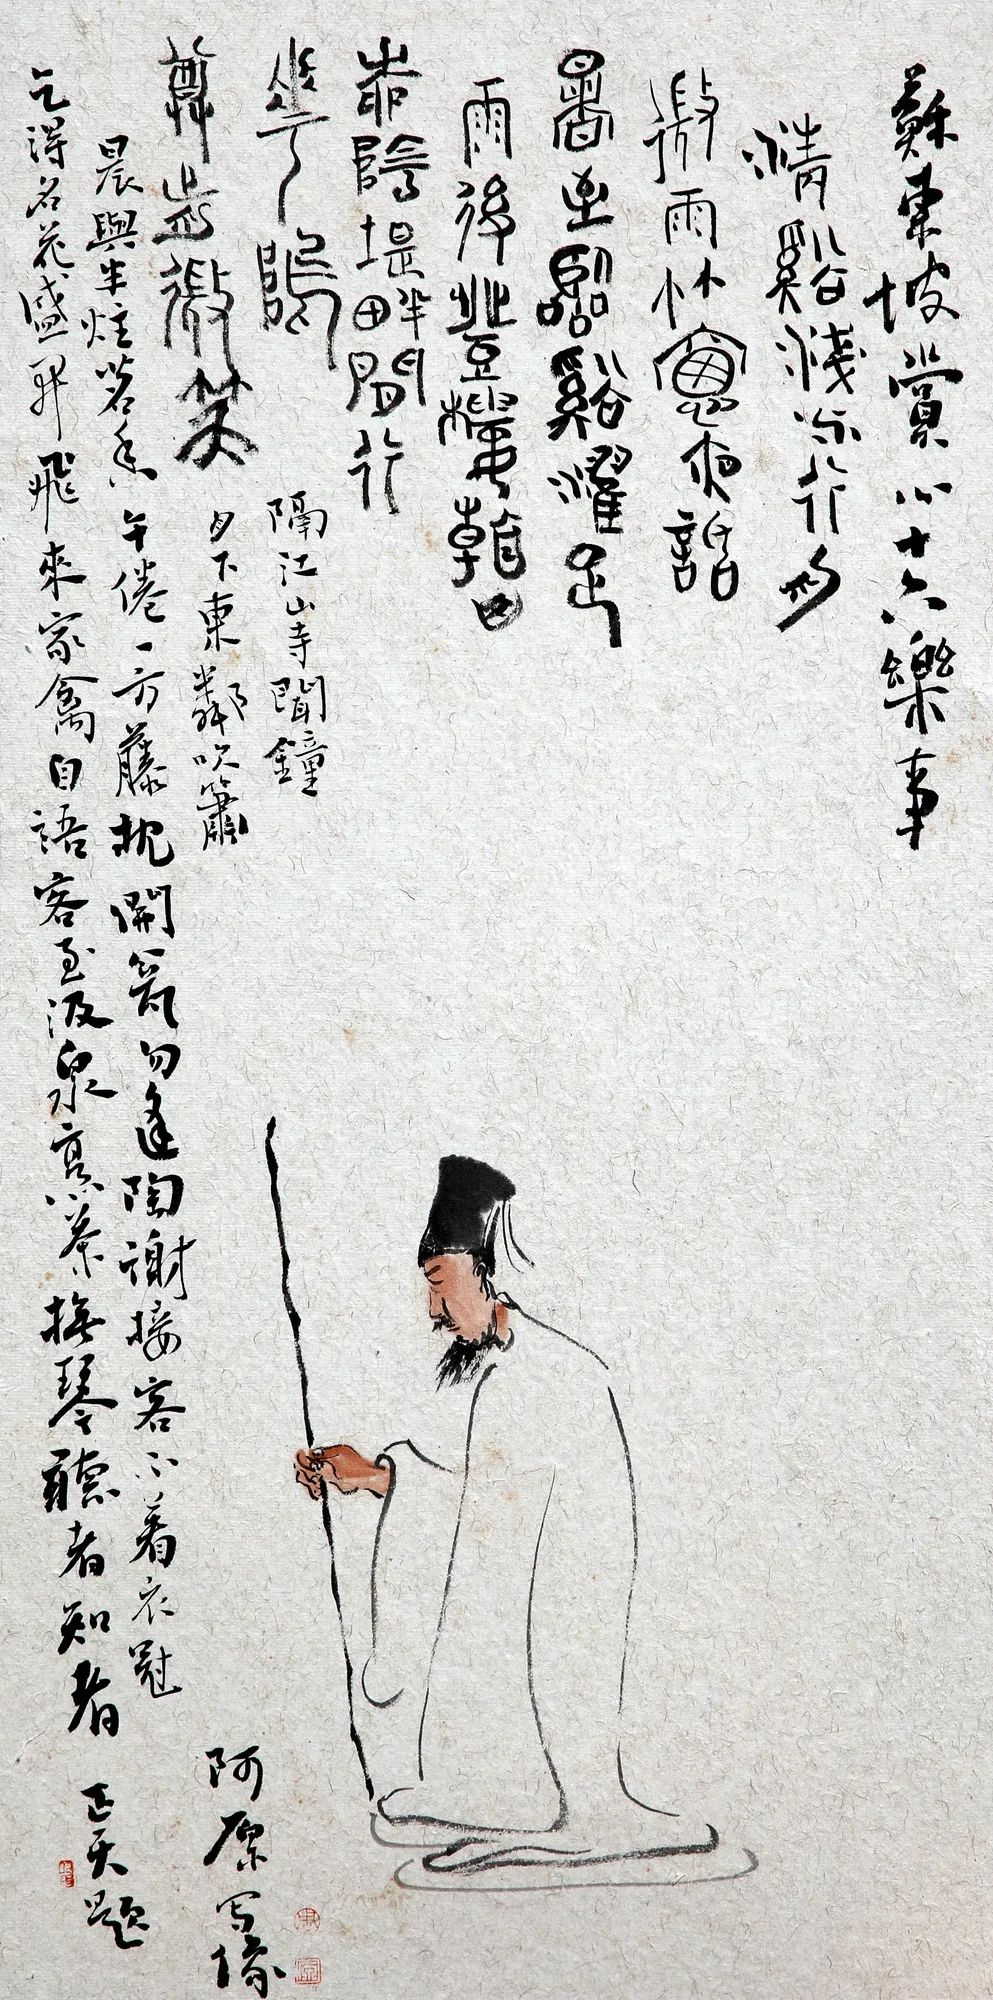 蘇東坡賞心十六樂事
清谿淺水行舟
微雨竹窻夜話
暑至臨谿濯足
雨後登樓看山
柳陰堤畔閒行
花塢
尊前微笑
隔江山寺聞鐘
月下東鄰吹簫
晨興半炷茗香午倦一方藤枕開甕勿逢陶謝接客不着衣冠
乞得名花盛開飛來家禽自語客至汲泉烹茶撫琴聽者知音
正天題
阿原寫像